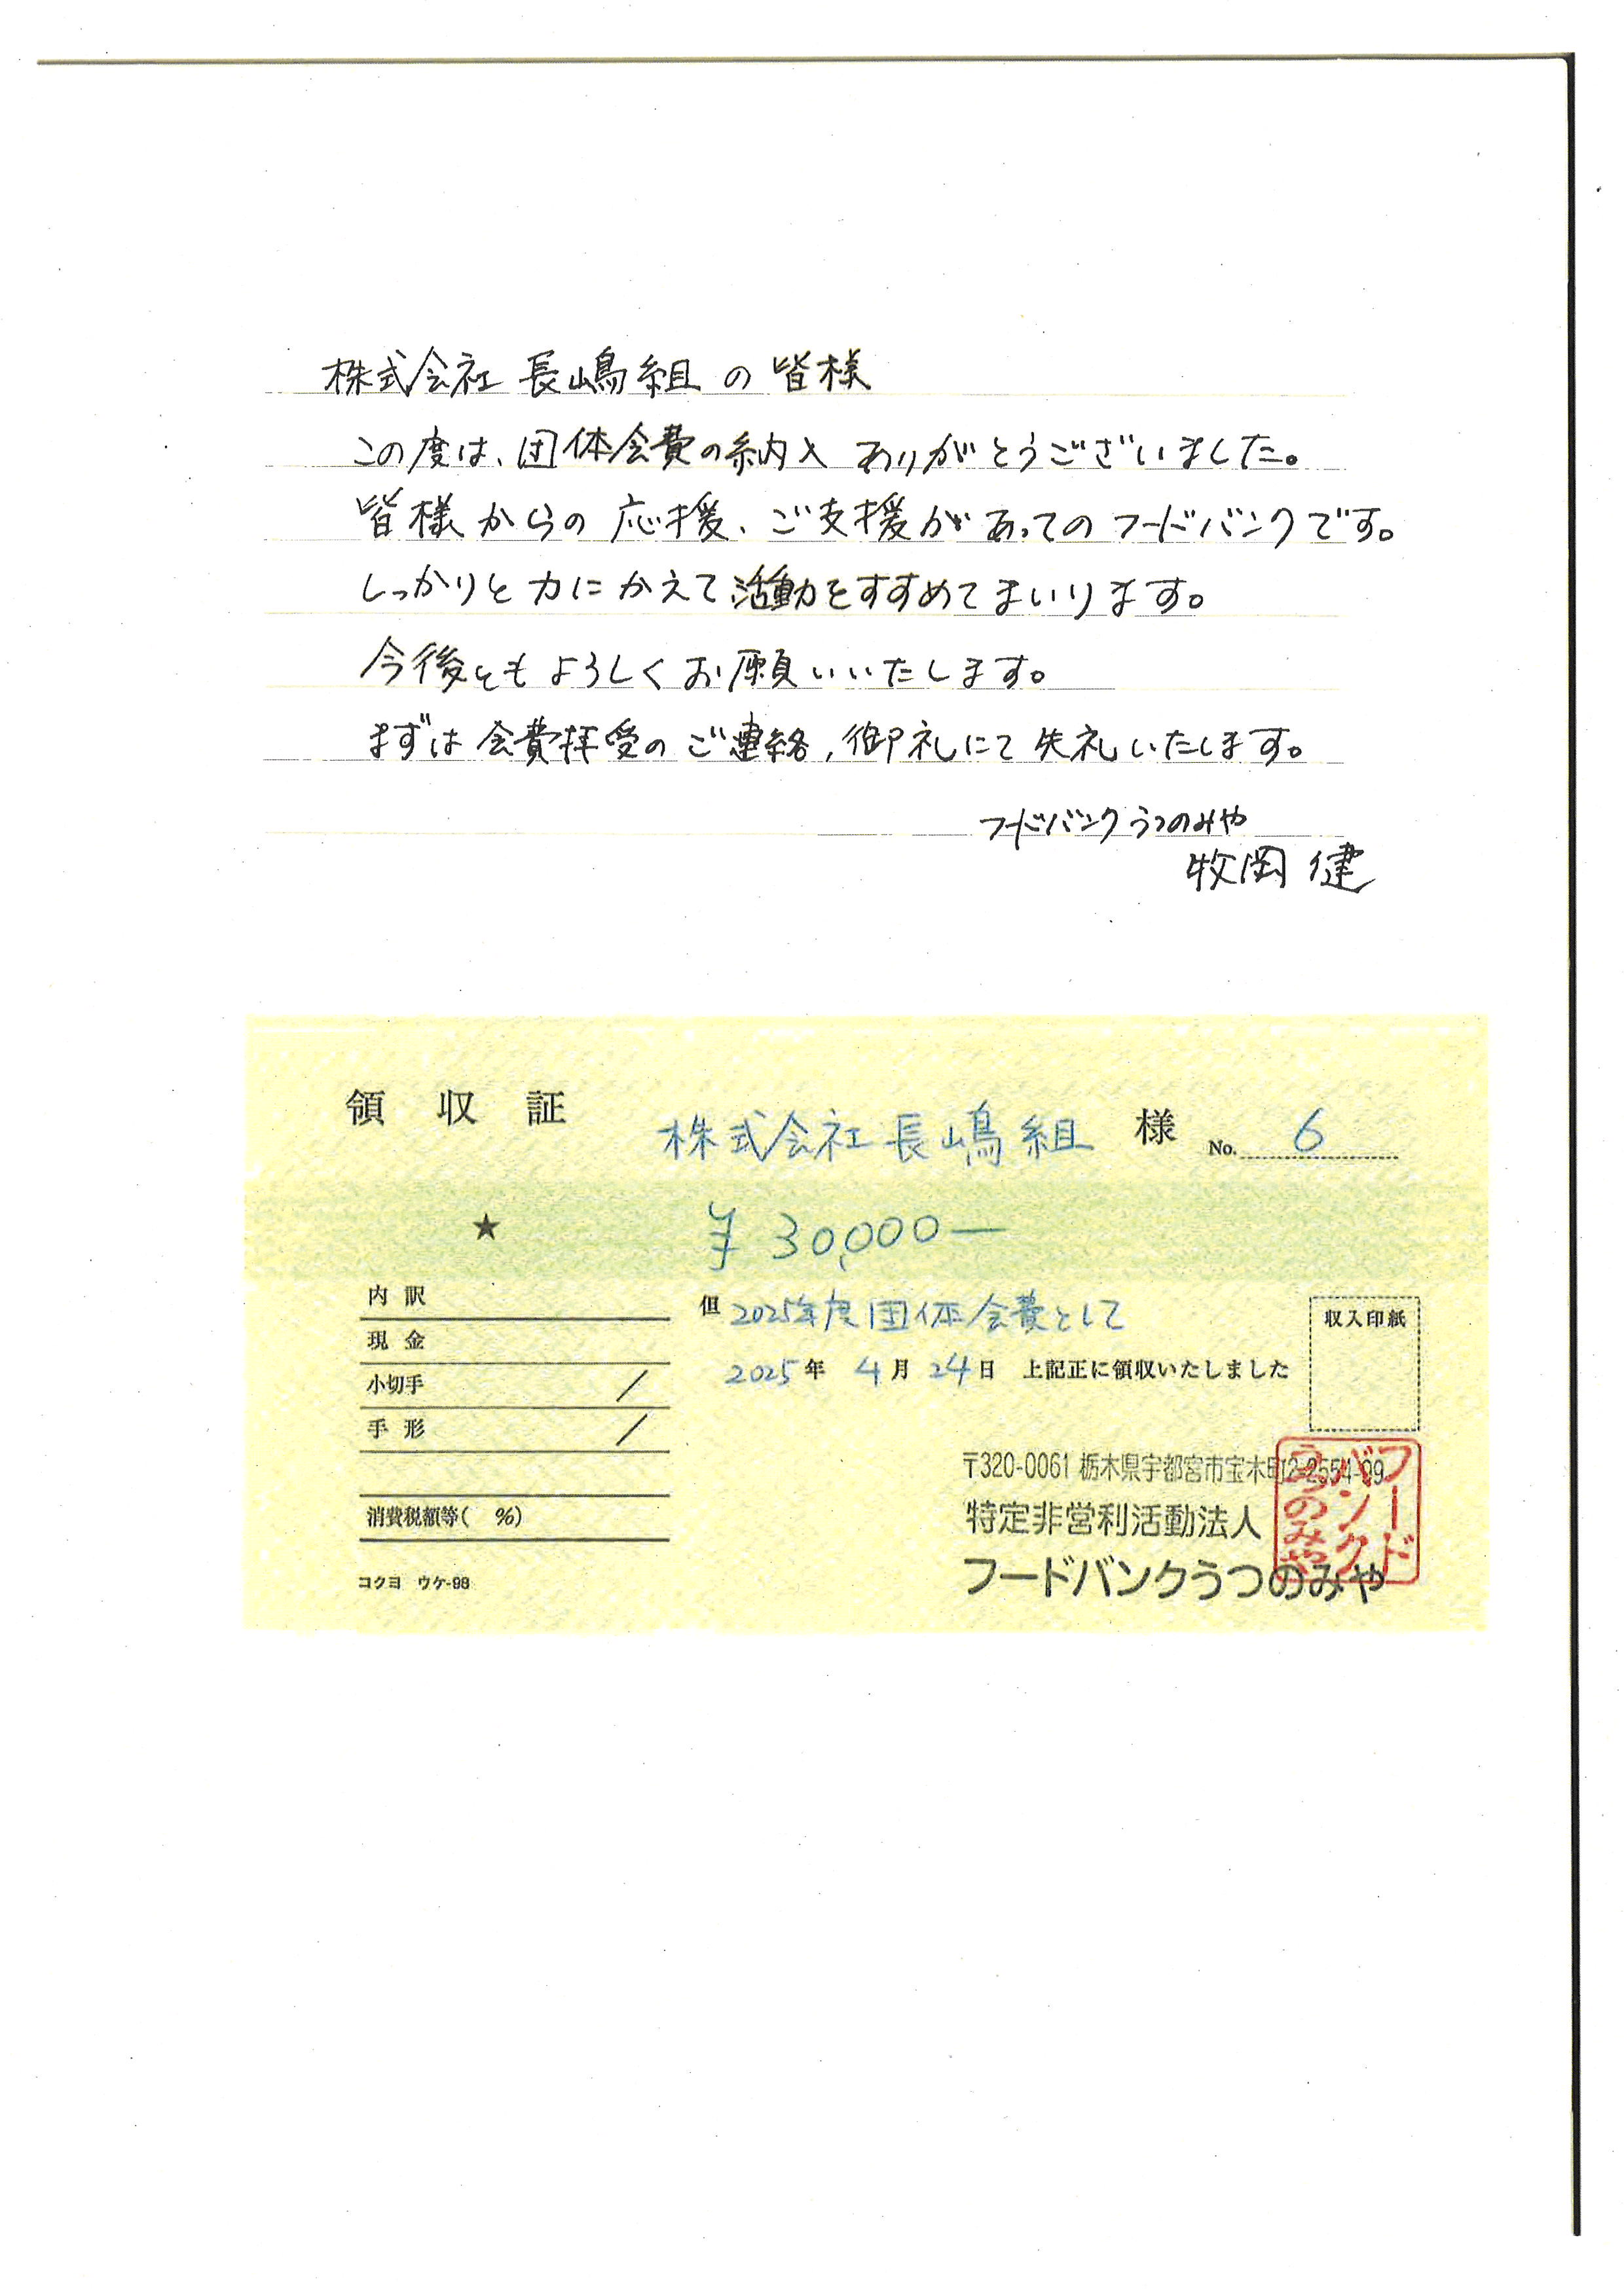 株式会社 長嶋組 の 皆様
この度は、団体会費の納入 ありがとうございました。
皆様からの 応援、ご支援があってのフードバンクです。
しっかりと力にかえて活動をすすめてまいります。
今後ともよろしくお願いいたします。
まずは会費拝受のご連絡,御礼にて失礼いたします。
フードバンクうつのみや
牧岡 健
領収証
株式会社長嶋組 様 No. 6
★ ¥30,000―
内訳
現金
小切手 /
手形 /
消費税額等( %)
コクヨ ウケ-98
但 2025年度団体会費として
2025年 4月 24日 上記正に領収いたしました
収入印紙
〒320-0061 栃木県宇都宮市宝木町2-2554-99
特定非営利活動法人
フードバンクうつのみや
フード
バンク
うつのみや